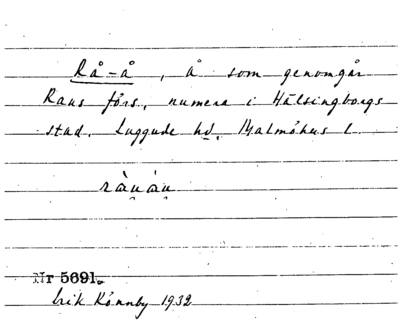 Rå-å, å som genomgår
Raus förs., numera i Hälsingborgs
stad. Luggude hd. Malmöhus l.
ràu̯àu̯
Nr 5691.
Erik Rönnby 1932